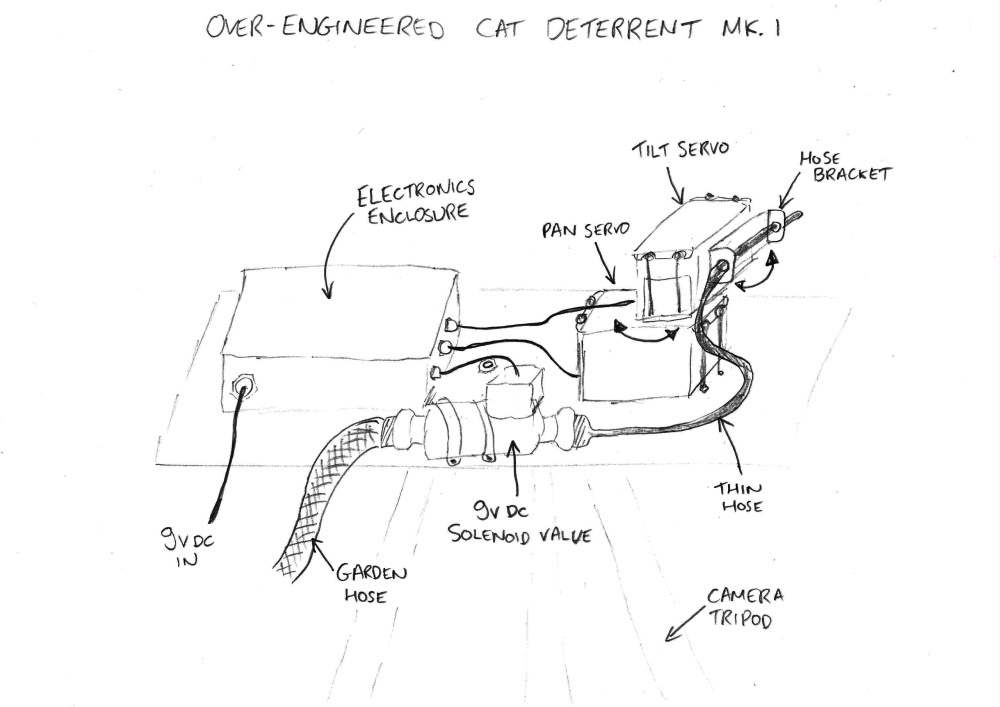 OVER-ENGINEERED CAT DETERRENT MK. 1
TILT SERVO
HOSE
BRACKET
ELECTRONICS
ENCLOSURE
PAN SERVO
THIN
HOSE
9V DC
SOLENOID VALUE
9V DC
IN
GARDEN
HOSE
CAMERA
TRIPOD